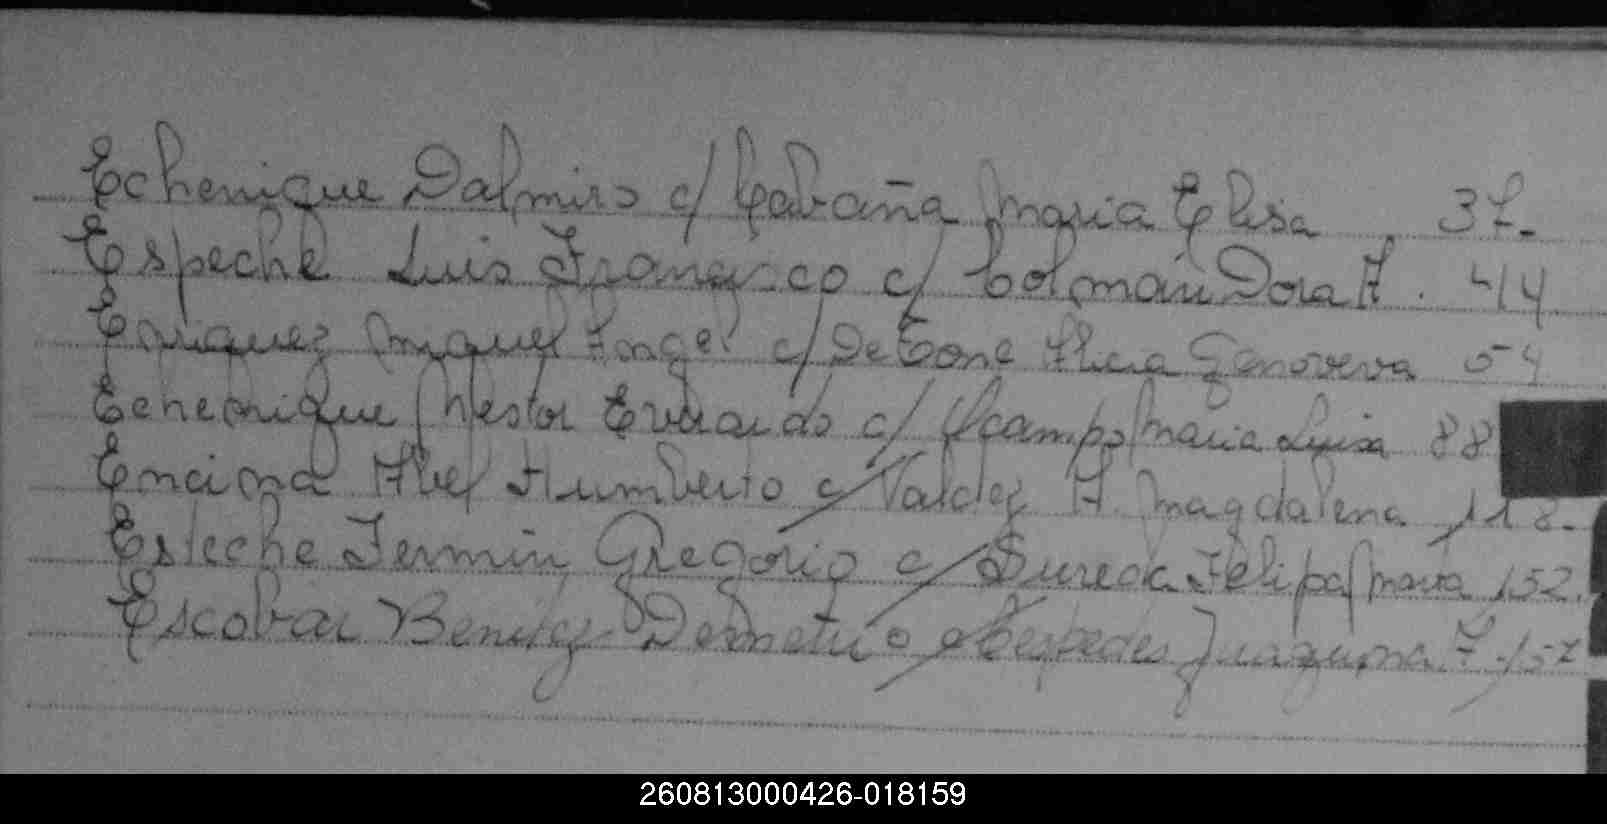 Echenique Dalmiro c/ Cabaña Maria Elisa 37-
Espeche Luis Francisco c/ Colman Dora A. 44
Enriquez Miguel Angel c/ De Cone Alicia Genoveva 54
Echenique Nestor Everardo c/ Ocampo Maria Luisa 88
Encina Abel Humberto c/ Valdez A. Magdalena 118-
Esteche Fermin Gregorio c/ Sureda Felipa Maria 152.
Escobar Benitez Demetrio c/ Cespedes Juaquina F. 157
260813000426-018159